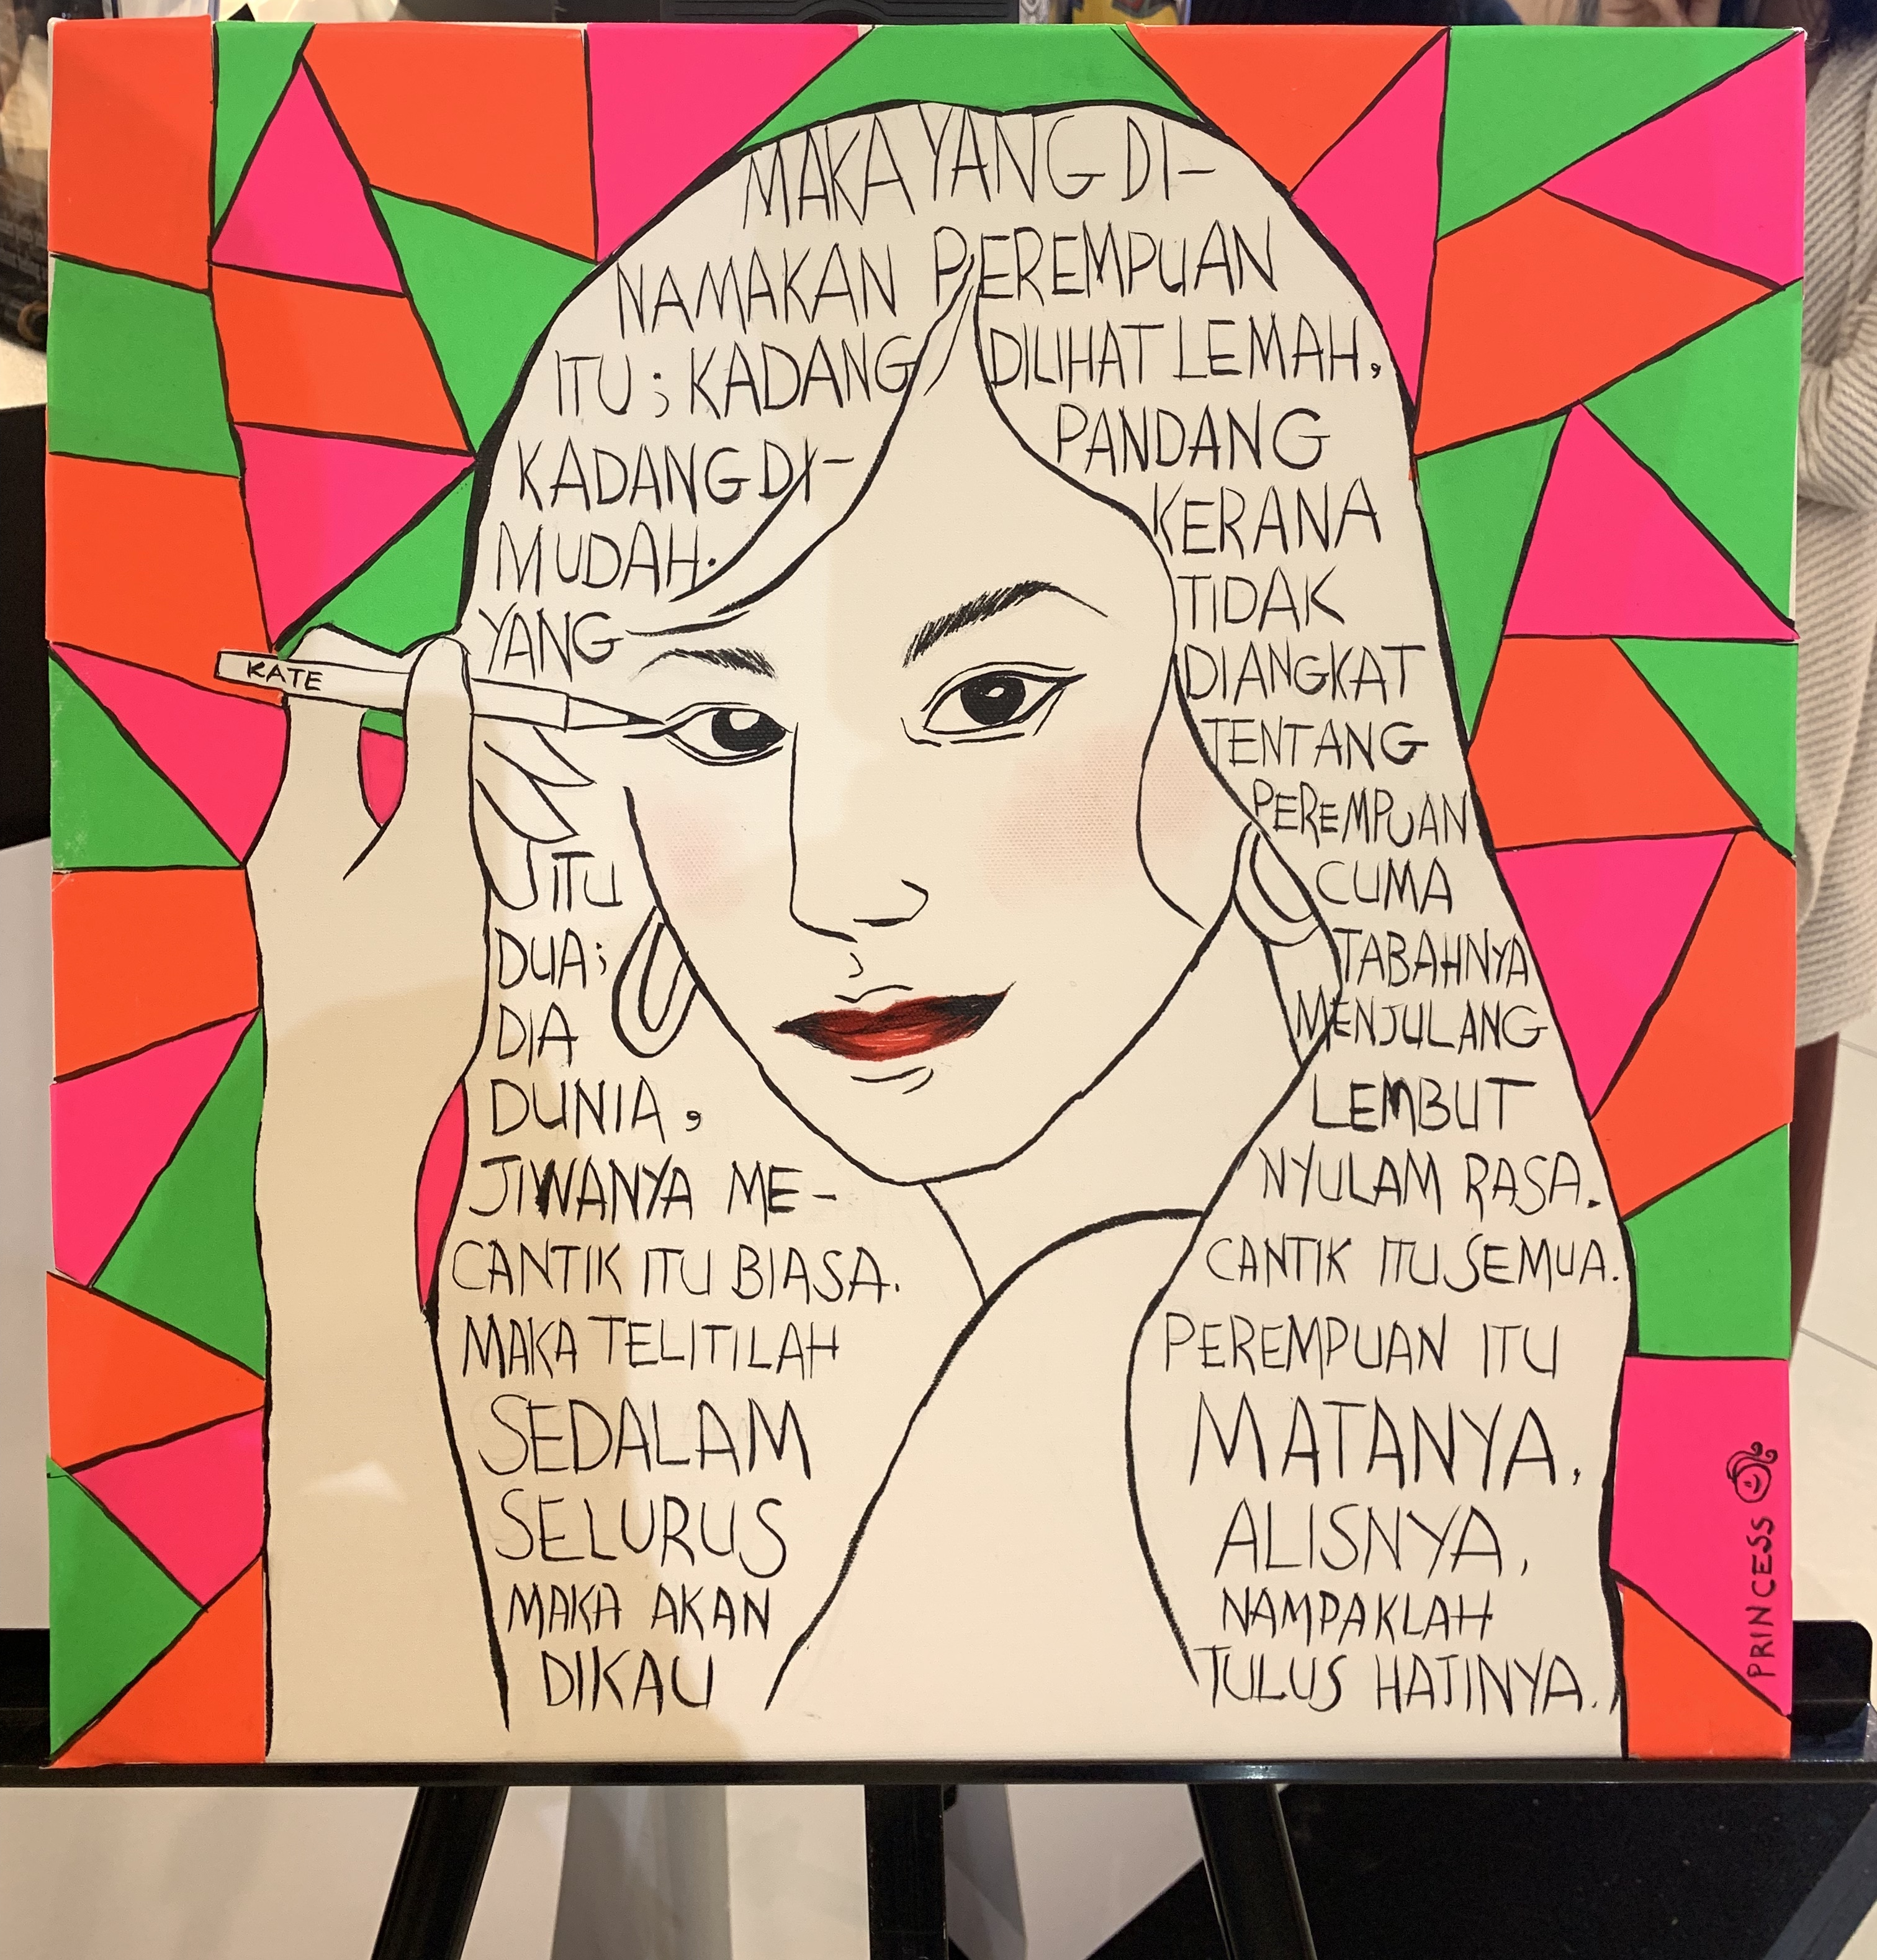 MAKA YANG DI-
NAMAKAN PEREMPUAN
ITU; KADANG DILIHAT LEMAH,
KADANG DI- PANDANG
MUDAH. KERANA
YANG TIDAK
DIANGKAT
KATE
TENTANG
PEREMPUAN
ITU CUMA
DUA; TABAHNYA
DIA MENJULANG
DUNIA, LEMBUT
JIWANYA ME- NYULAM RASA.
CANTIK ITU BIASA. CANTIK ITU SEMUA.
MAKA TELITILAH PEREMPUAN ITU
SEDALAM MATANYA,
SELURUS ALISNYA,
MAKA AKAN NAMPAKLAH
DIKAU TULUS HATINYA.
PRINCESS